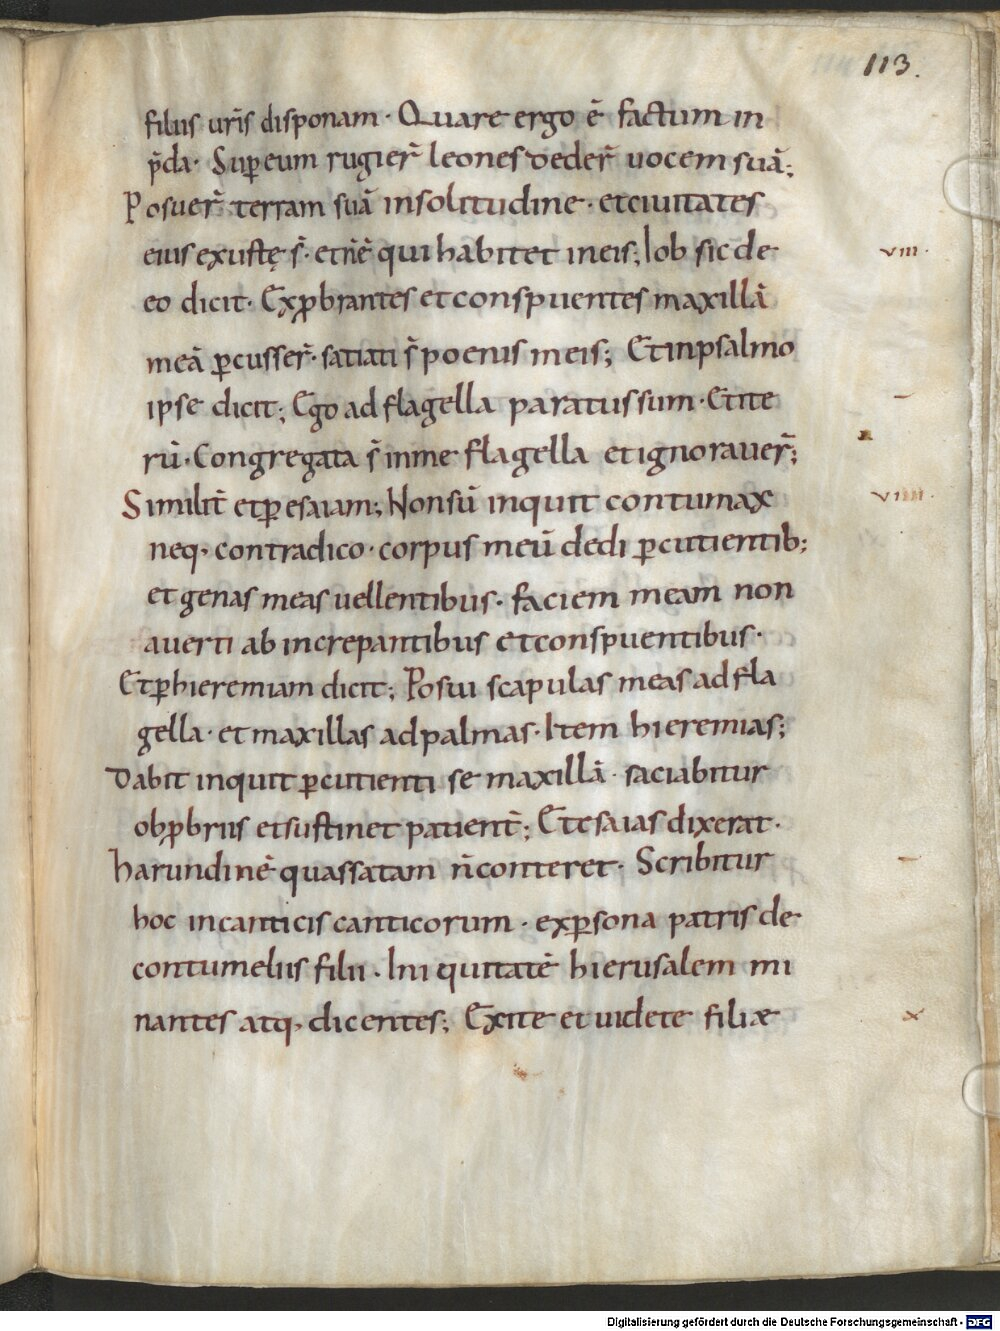 113.
filiis ur̄is disponam · Quare ergo ē factum in
p̄da · Sup̱ eum rugier̄ leones deder̄ uocem suā;
Posuer̄ terram suā insolitudine · et ciuitates
eius exustę s̄ · et n̄ ē qui habitet in eis; Iob sic de
viii ·
eo dicit · Exp̱brantes et conspuentes maxillā
meā p̱cusser̄ · satiati s̄ poenis meis; Et inpsalmo
ipse dicit; Ego ad flagella paratus sum · Et ite
rū · Congregata s̄ in me flagella et ignorauer̄;
Similit̄ et p̱ esaiam; Non sū inquit contumax
viiii ·
neq· contradico · corpus meū dedi p̱cutientib;
et genas meas uellentibus · faciem meam non
auerti ab increpantibus et conspuentibus ·
Et p̱ hieremiam dicit; Posui scapulas meas ad fla
gella · et maxillas ad palmas · Item hieremias;
Dabit inquit p̱cutienti se maxillā · saciabitur
obp̱briis et sustinet patient̄; Et esaias dixerat ·
harundinē quassatam n̄ conteret · Scribitur
hoc in canticis canticorum · ex p̱sona patris de
contumeliis filii · Ini quitatē hierusalem mi
nantes atq· dicentes; Exite et uidete filiæ
x
Digitalisierung gefördert durch die Deutsche Forschungsgemeinschaft - DFG